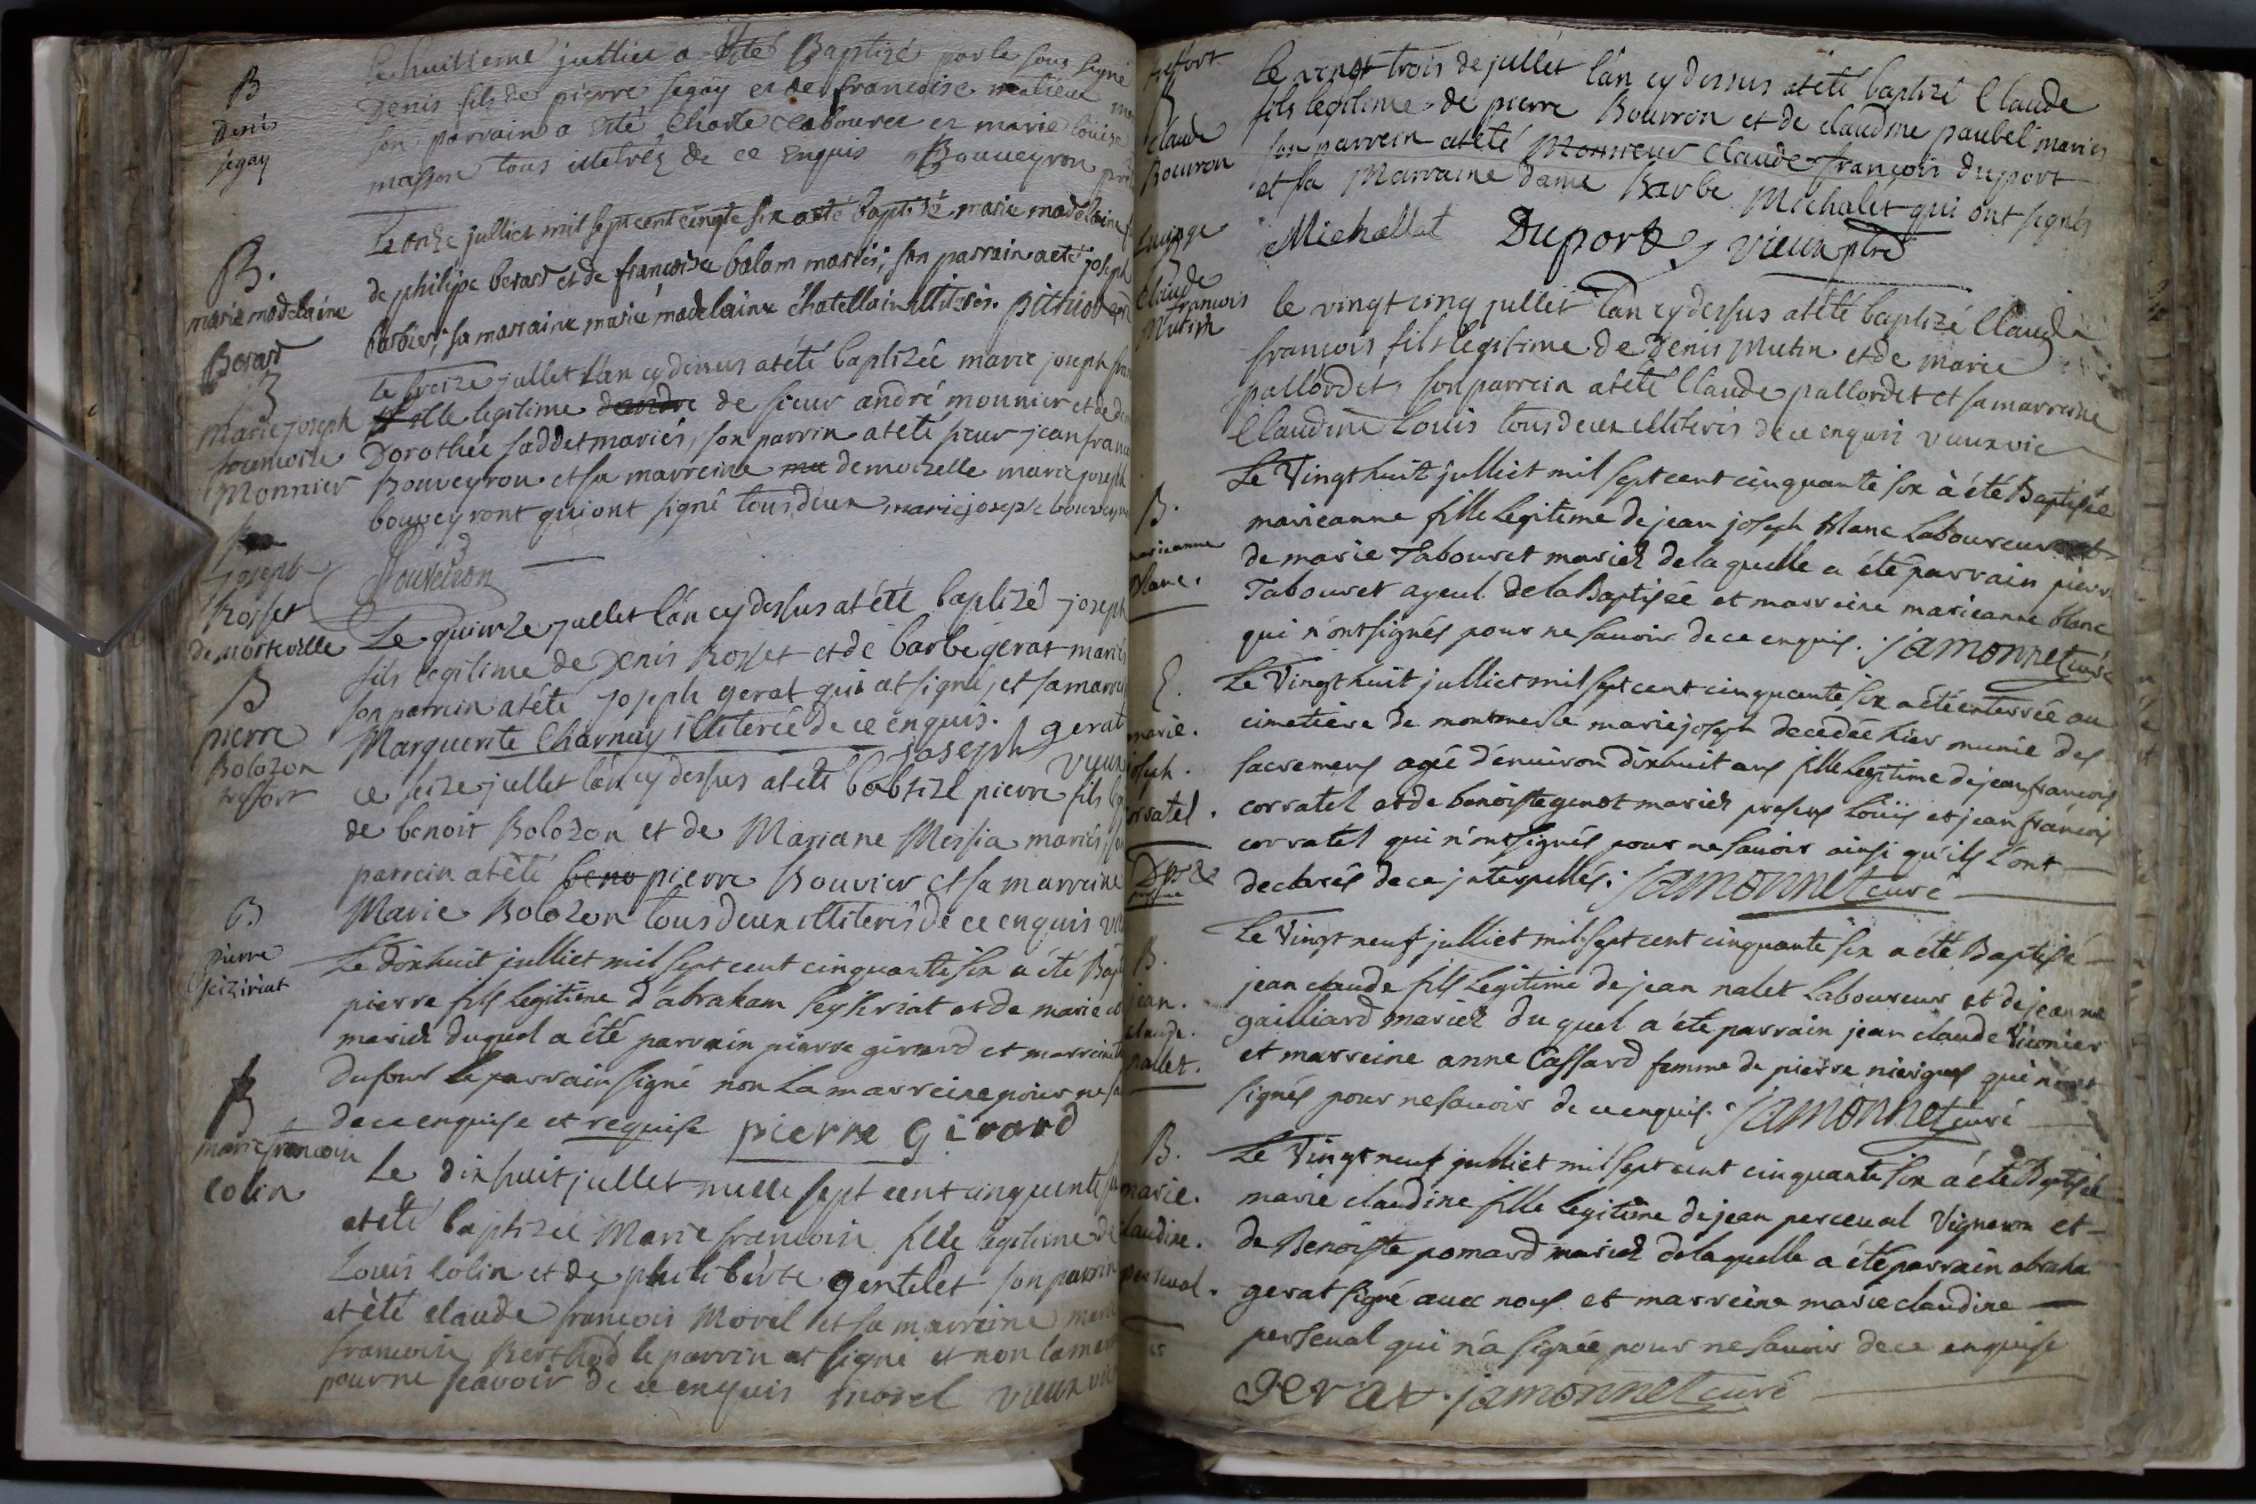 B
Denis
segay
Le huitieme julliet a été Baptizé par le sous signé
Denis fils de pierre segay et de francoise
son parrain a été Charle Labouree et marie louise
masson tous illetrés de ce enquis Bouveyron
B.
marie madelaine
Berard
Le onze julliet mil sept cent cinqte six a eté baptisé marie madelaine
de philipe berard et de françoise balam mariés; son parrain a eté joseph
barbier, sa marraine marie madelaine chatellain illiterés.
B
Marie joseph
francoise
Monnier
le treize jullet l'an cy dessus at été baptizée marie joseph
fille legitime de sieur andré monnier et de
Dorothée saddet mariés, son parrin at eté sieur jean
Bouveyron et sa marreine demoizelle marie joseph
bouveyront qui ont signé tous deux marie joseph bouveyron
Bouveiron
B
joseph
Rosset
de Morteville
Le quinze jullet l'an cy dessus at été baptizé joseph
fils legitime de Denis Rosset et de barbe gerat mariés
son parrein at été joseph gerat qui at signé, et sa marreine
Marguerite Charnay illiterée de ce enquis.
joseph gerat
vieux
B
pierre
Bolozon
trefort
ce seize jullet l'an cy dessus at été babtizé pierre fils
de benoit Bolozon et de Mariane Messia mariés,
parrein at été beno pierre Bouvier et sa marreine
Marie Bolozon tous deux illiterés de ce enquis
B
pierre
seiziriat
Le dixhuit julliet mil sept cent cinquante six a été
pierre fils legitime d'abraham seyseriat et de marie
mariez duquel a été parrain pierre girard et marreine
dufour le parrain signé non la marreine pour ne
de ce enquise et requise pierre Girard
B
marie francoise
Colin
Le dixhuit jullet mille sept cent cinquente six
at été baptizée Marie francoise fille legitime de
Louis Colin et de philiberte gentelet son parrin
at été claude francois Morel et sa marreine
francoise Berthod le parrin at signé et non la
pour ne scavoir de ce enquis morel vieux
trefort
B
Claude
Bouvron
Le vingt trois de jullet l'an cy dessus at été baptizé Claude
fils legitime de pierre Bouvron et de claudine paubel mariés
son parrein at été Monsieur Claude françois duport
et sa Marraine dame Barbe Michalet qui ont signés
Michallet Duport vieux ptre
B
Claude
francois
Mutin
le vingt cinq jullet l'an cy dessus at été baptizé Claude
francois fils legitime de Denis Mutin et de marie
pallordet, son parrein at été Claude pallordet et sa marreine
Claudine Louis tous deux illiterés de ce enquis vieux vic
B.
marieanne
blanc.
Le Vingt huit julliet mil sept cent cinquante six à été Baptisée
marieanne fille legitime de jean joseph blanc Laboureur et
de marie Tabouret mariez de laquelle a été parrain pierre
Tabouret ayeul de la Baptisée et marreine marieanne blanc
qui n'ont signés pour ne savoir de ce enquis. jamonnet curé
E.
marie.
joseph.
corratel.
Le Vingt huit julliet mil sept cent cinquante six a été enterrée au
cimetiere de montmerle marie joseph decedée hier munie des
sacremens agée d'environ dixhuit ans fille legitime de jean françois
corratel et de benoiste genot mariez presens Loüis et jean françois
corratel qui n'ont signés pour ne savoir ainsi qu'ils l'ont
declarés de ce interpellés. jamonnet curé
B.
jean.
claude.
nallet.
Le Vingt neuf julliet mil sept cent cinquante six a été Baptisé
jean claude fils legitime de jean nalet Laboureur et de jeanne
gailliard mariez du quel a été parrain jean claude Vionier
et marreine anne Cassard femme de pierre niergues qui n'ont
signés pour ne savoir de ce enquis. jamonnet curé
B.
marie.
claudine.
perseval.
Le Vingt neuf julliet mil sept cent cinquante six a été Baptisée
marie claudine fille legitime de jean perceval Vigneron et
de Benoiste pomard mariez de laquelle a été parrain abraha
gerat signé avec nous et marreine marie claudine
perseval qui n'a signée pour ne savoir de ce enquise
Gerat. jamonnet curé